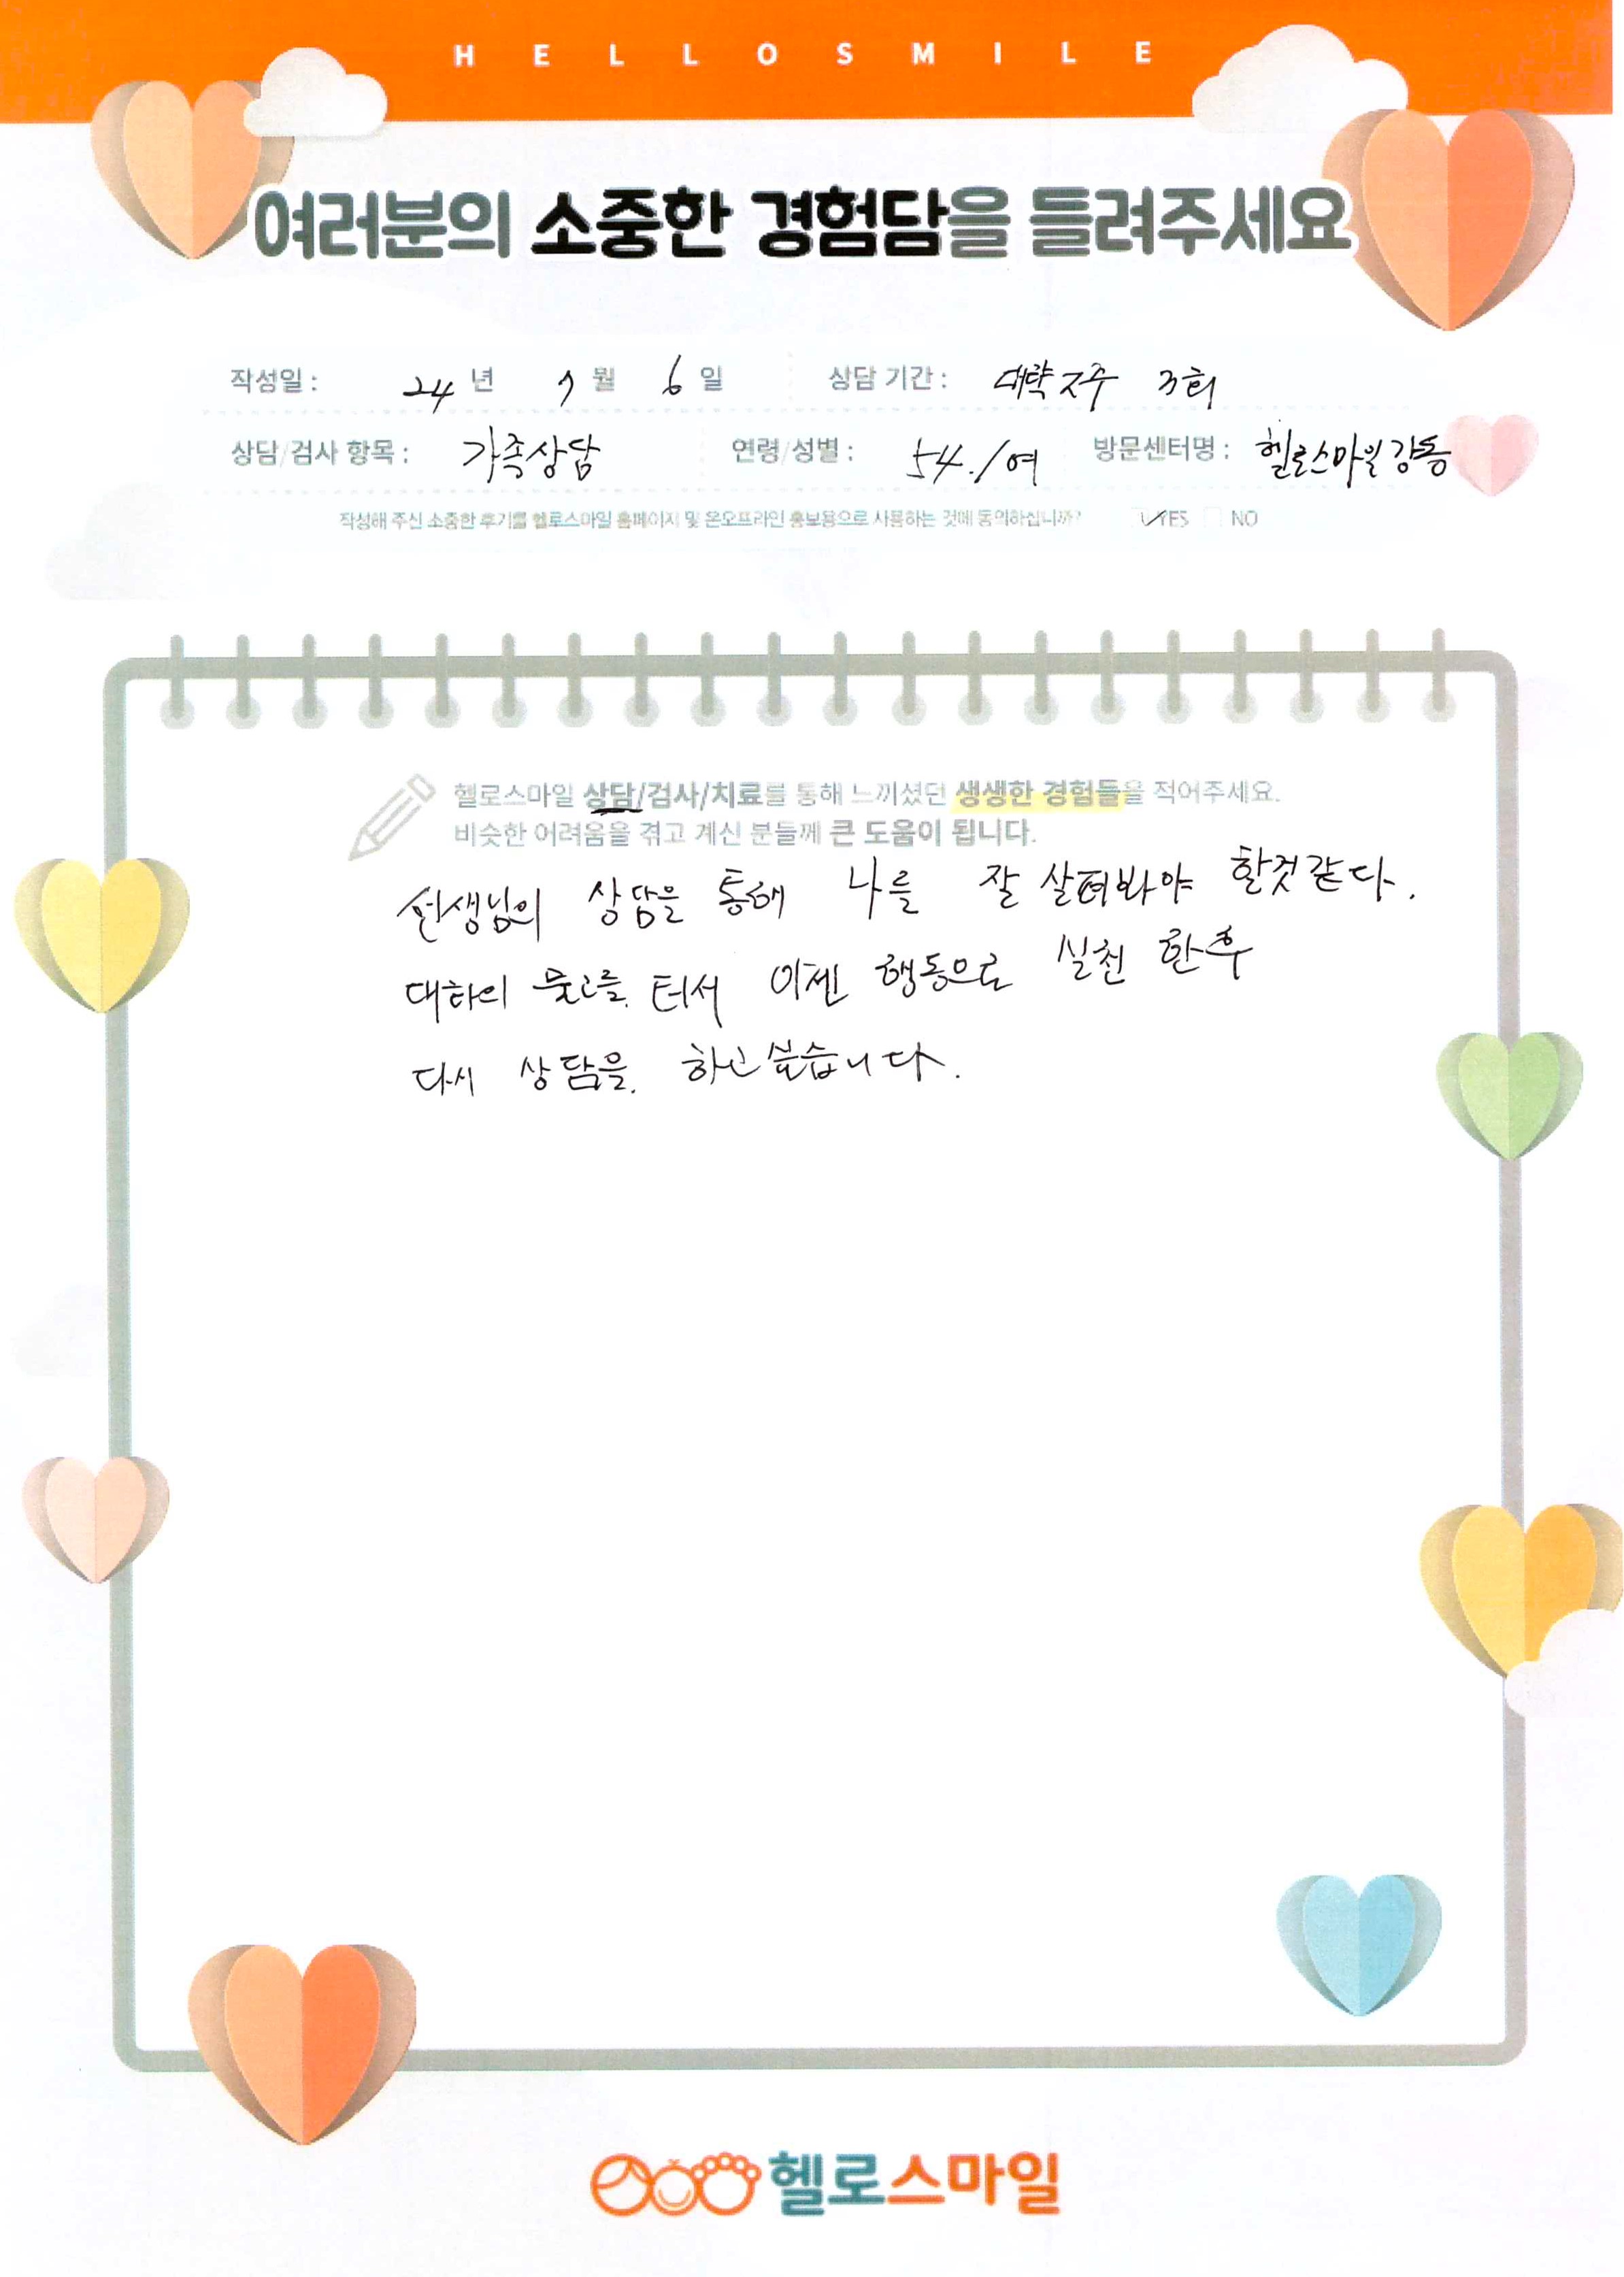 HELLOSMILE
여러분의 소중한 경험담을 들려주세요
작성일 : 24 년 7 월 6 일 상담 기간 : 대략 2주 3회
상담/검사 항목 : 가족상담 연령/성별 : 54./여 방문센터명 : 헬로스마일강동
작성해 주신 소중한 후기를 헬로스마일 홈페이지 및 온오프라인 홍보용으로 사용하는 것에 동의하십니까? YES NO
헬로스마일 상담/검사/치료를 통해 느끼셨던 생생한 경험들을 적어주세요.
비슷한 어려움을 겪고 계신 분들께 큰 도움이 됩니다.
선생님의 상담을 통해 나를 잘 살펴봐야 할것같다.
대화의 물고를 터서 이젠 행동으로 실천 한후
다시 상담을 하고싶습니다.
헬로스마일